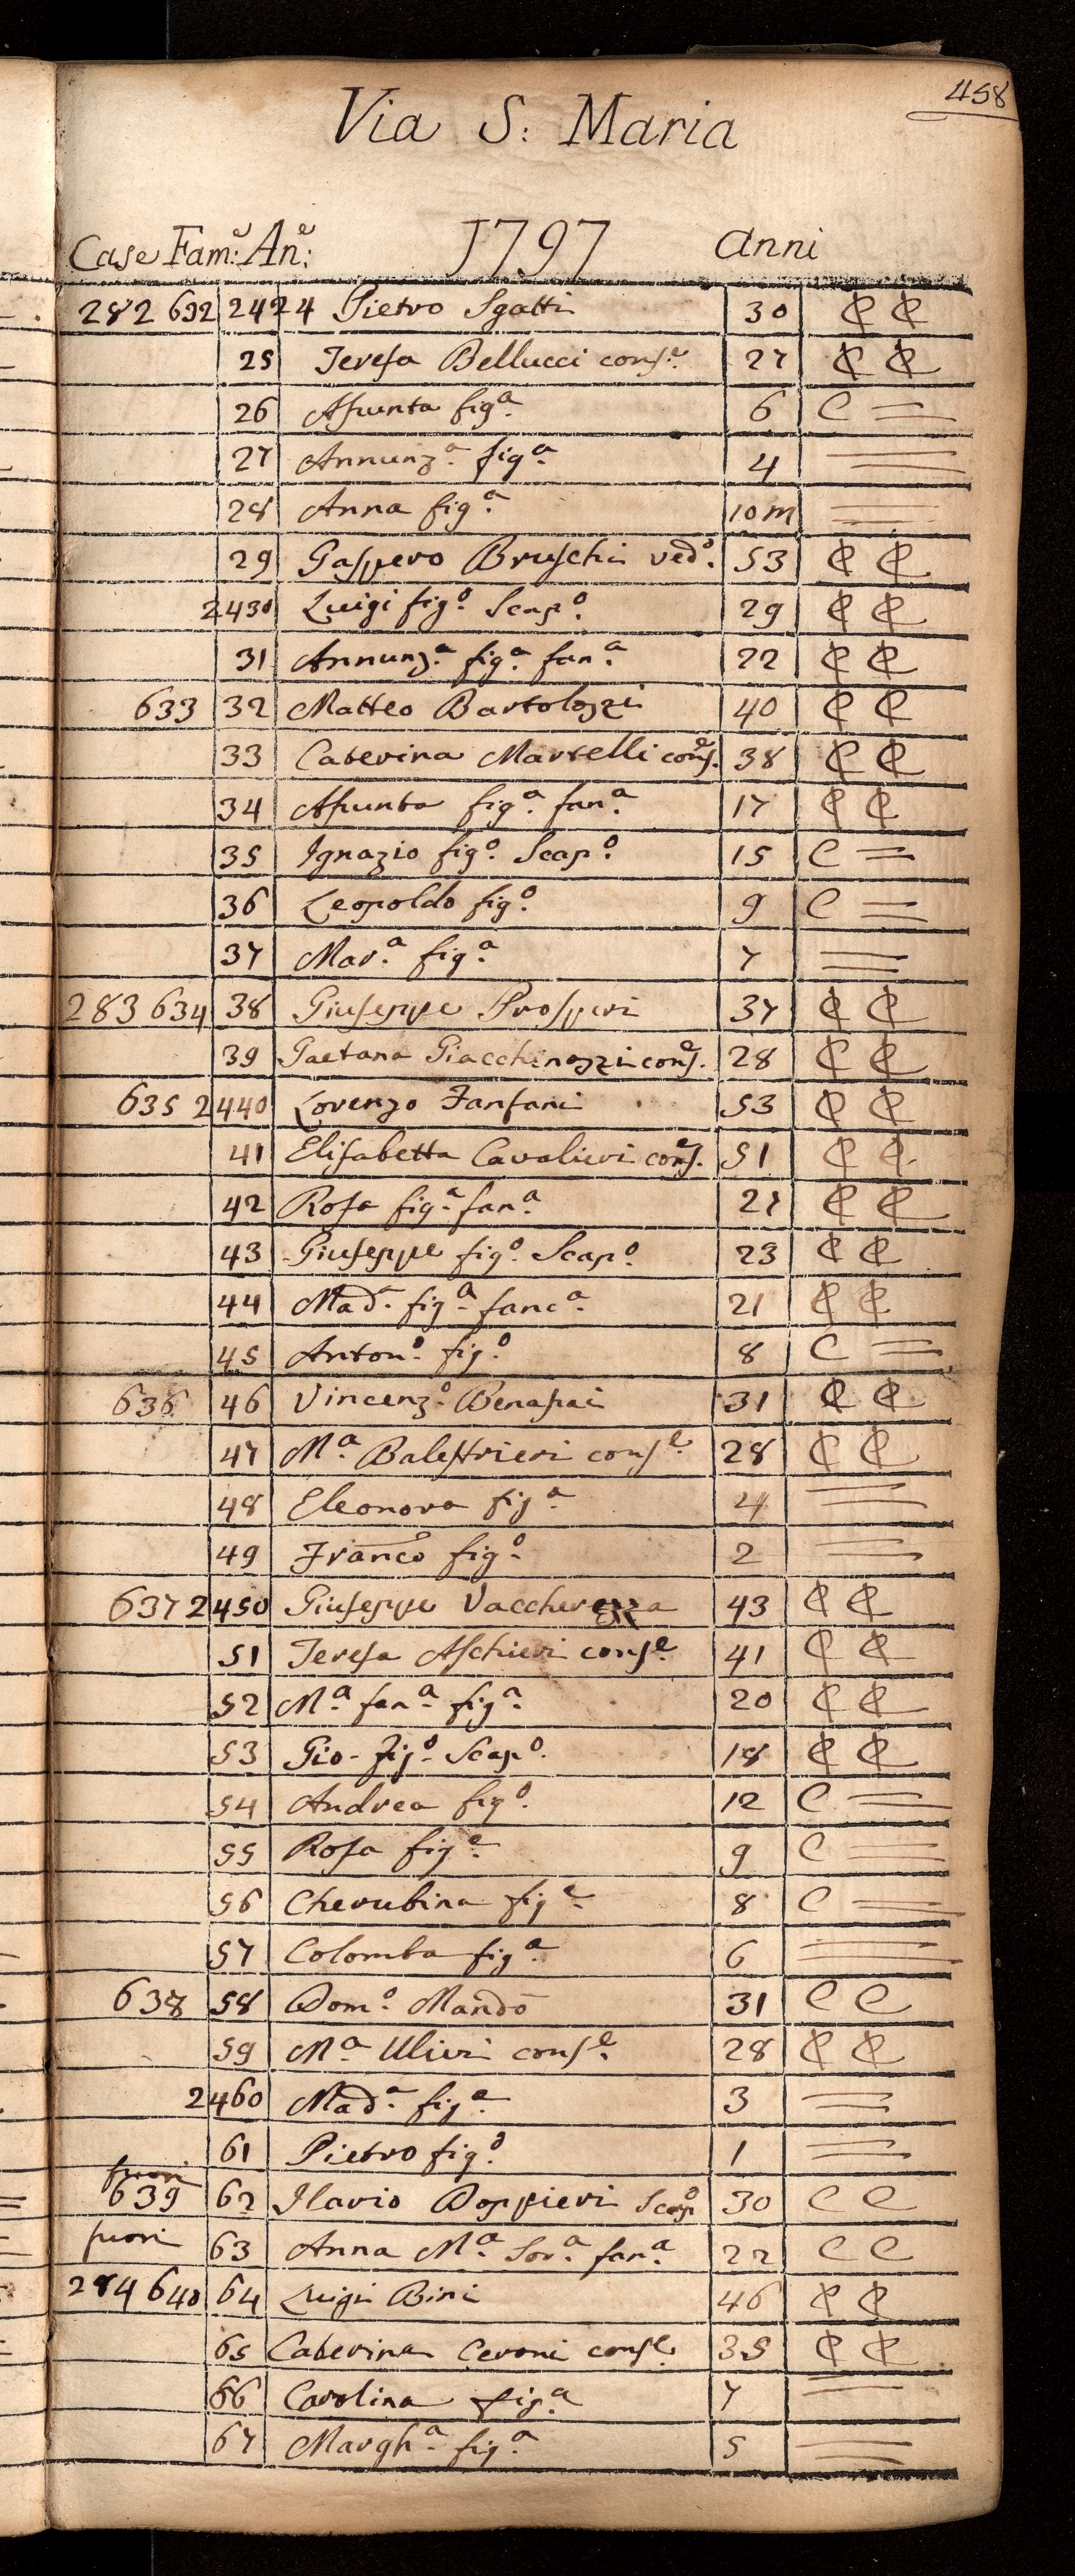 458
Via S: Maria
Case Fam:e An:e 1797 anni
282 632 2424 Pietro Sgatti 30 C C
25 Teresa Bellucci conse. 27 C C
26 Assunta figa. 6 C =
27 Annunza. figa. 4 =
28 Anna figa. 10 m =
29 Gaspero Bruschi vedo. 53 C C
2430 Luigi figo. Scapo. 29 C C
31 Annunza. figa. fana. 22 C C
633 32 Matteo Bartolozzi 40 C C
33 Caterina Martelli conse. 38 C C
34 Assunta figa. fana. 17 C C
35 Ignazio figo. Scapo. 15 C =
36 Leopoldo figo. 9 C =
37 Mara. figa. 7 =
283 634 38 Giuseppe Prosperi 37 C C
39 Gaetana Giacchinozzi conse. 28 C C
635 2440 Lorenzo Fanfani 53 C C
41 Elisabetta Cavalieri conse. 51 C C
42 Rosa figa. fana. 27 C C
43 Giuseppe figo. Scapo. 23 C C
44 Mada. figa. fanca. 21 C C
45 Antono. figo. 8 C =
636 46 Vincenzo. Benassai 31 C C
47 Ma. Balestrieri conse. 28 C C
48 Eleonora figa. 4 =
49 Franco figo. 2 =
637 2450 Giuseppe Vaccherezza 43 C C
51 Teresa Aschieri conse. 41 C C
52 Ma. fana. figa. 20 C C
53 Gio. figo. Scapo. 18 C C
54 Andrea figo. 12 C =
55 Rosa figa. 9 C =
56 Cherubina figa. 8 C =
57 Colomba figa. 6 =
638 58 Domo. Mandò 31 C C
59 Ma. Ulivi conse. 28 C C
2460 Mada. figa. 3 =
61 Pietro figo. 1 =
fuori
639 62 Ilario Doppieri Scapo 30 C C
fuori 63 Anna Ma. Sora. fana. 22 C C
284 640 64 Luigi Bini 46 C C
65 Caterina Ceroni conse. 35 C C
66 Carolina figa. 7 =
67 Margha. figa. 5 =